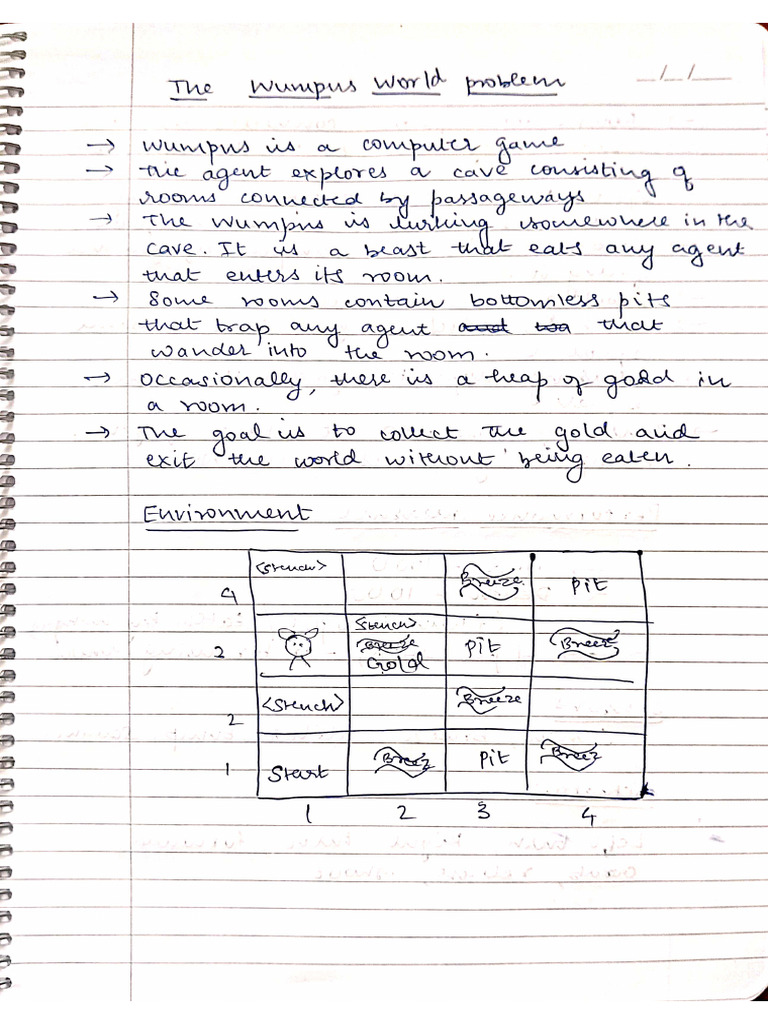 The Wumpus World problem
_/_/__
→ Wumpus is a computer game
→ The agent explores a cave consisting of
rooms connected by passageways
→ The Wumpus is lurking somewhere in the
cave. It is a beast that eats any agent
that enters its room.
→ Some rooms contain bottomless pits
that trap any agent that
wander into the room.
→ Occasionally, there is a heap of gold in
a room.
→ The goal is to collect the gold and
exit the world without being eaten.
Environment
4 <Stench> Breeze Pit
<Stench>
2 Breeze Pit Breeze
Gold
2 <Stench> Breeze
1 Start Breez Pit Breez
1 2 3 4